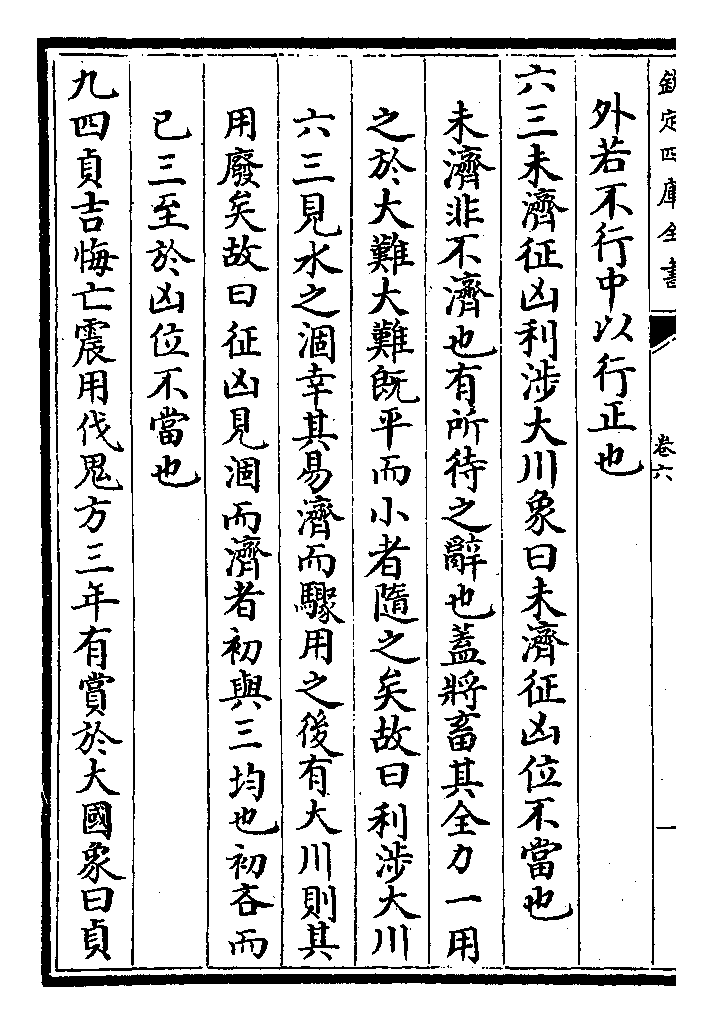 欽定四庫全書
卷六
一
外若不行中以行正也
六三未濟征凶利涉大川象曰未濟征凶位不當也
未濟非不濟也有所待之辭也蓋將畜其全力一用
之於大難大難既平而小者隨之矣故曰利涉大川
六三見水之涸幸其易濟而驟用之後有大川則其
用廢矣故曰征凶見涸而濟者初與三均也初吝而
已三至於凶位不當也
九四貞吉悔亡震用伐鬼方三年有賞於大國象曰貞